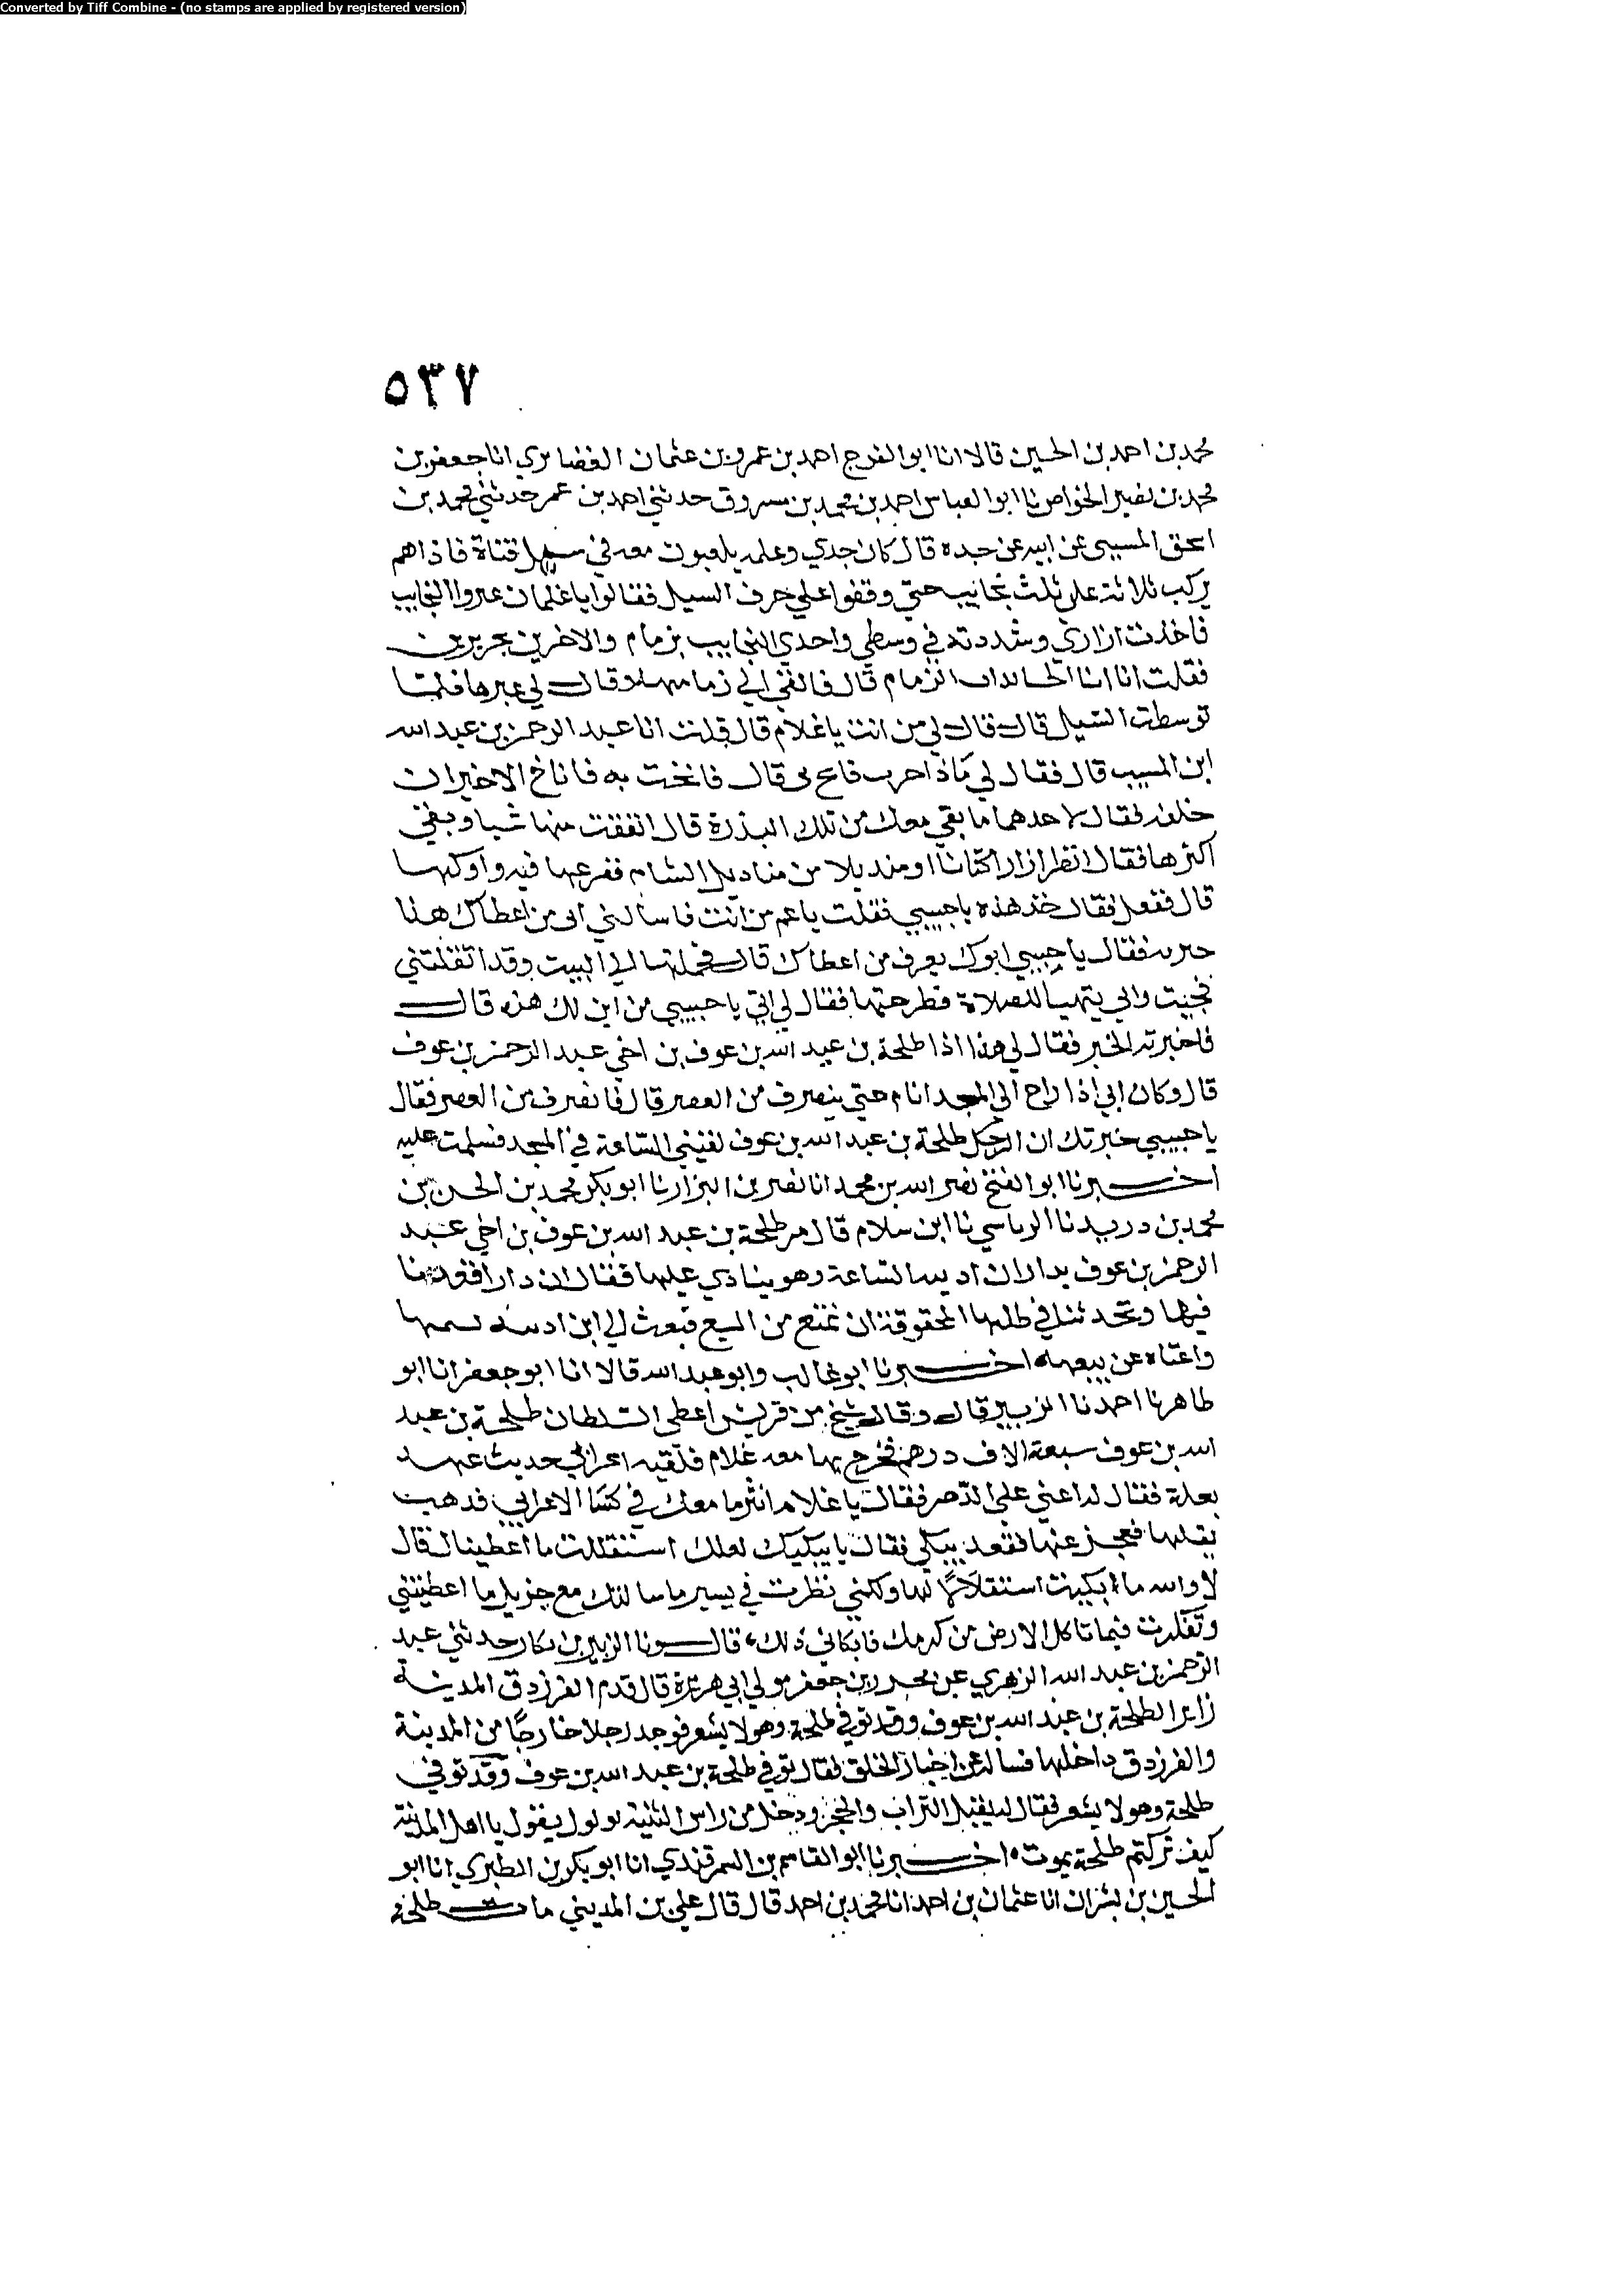 Converted by Tiff Combine - (no stamps are applied by registered version)
٥٣٧
محمد بن احمد بن الحسين قالا انا ابو الفرج احمد بن عمرو بن عثمان الغضايري انا جعفر بن
محمد بن نصير الخواص نا ابو العباس احمد بن محمد بن مسروق حدثني احمد بن عمر حدثني محمد بن
اسحق المسيبي عن ابيه عن جده قال كان جدي وغلمة يلعبون معه في سيل قناة فاذا هم
بركب ثلاثة على ثلث نجايب حتى وقفوا علي حرف السيل فقالوا يا غلمان عبروا النجايب
فاخذت ازاري وشددته في وسطي واحدي النجايب بزمام والاخرين بجريرين
فقلت انا انا الزمام قال فالقي الي زمامها وقال لي عبرها فلما
توسطت السيل قال قال لي من انت يا غلام قال قلت انا عبد الرحمن بن عبد الله
ابن المسيب قال فقال لي قال فانخت به فاناخ الاخيران
خلفه فقال لاحدهما ما بقي معك من تلك البدرة قال انفقت منها شيا وبقي
اكثرها فقال انظر ازارا كتانا او منديلا من مناديل الشام ففرغها فيه واوكها
قال ففعل فقال خذ هذه يا حبيبي فقلت يا عم من انت فاسالني ابي من اعطاك هذا
فقال يا حبيبي ابوك يعرف من اعطاك قال فحملتها الي البيت وقد اثقلتني
فجيت وابي يتهيا للصلاة فطرحتها فقال لي ابي يا حبيبي من اين لك هذه قال
فاخبرته الخبر فقال لي هذا اذا طلحة بن عبد الله بن عوف بن اخي عبد الرحمن بن عوف
قال وكان ابي اذا راح الي المسجد انام حتي ينصرف من العصر قال فانصرف من العصر فقال
يا حبيبي خبرتك ان الرجل طلحة بن عبد الله بن عوف لقيني الساعة في المسجد فسلمت عليه
اخبرنا ابو الفتح نصر الله بن محمد انا نصر بن البزار نا ابو بكر محمد بن الحسن بن
محمد بن دريد نا الرياسي نا ابن سلام قال مر طلحة بن عبد الله بن عوف بن اخي عبد
الرحمن بن عوف بدار الساعة وهو ينادي عليها فقال ان دارا قعدنا
فيها وتحدثنا في ظلها لمحقوقة ان تمنع من البيع فبعث الي ابن
واغناه عن بيعها اخبرنا ابو غالب وابو عبد الله قالا انا ابو جعفر انا ابو
طاهر نا احمد نا الزبير قال وقال شيخ من قريش اعطى السلطان طلحة بن عبد
الله بن عوف سبعة الاف درهم فخرج بها معه غلام فلقيه اعرابي حديث عهد
بعلة فقال له اعني على الدهر فقال يا غلام انثر ما معك في كسا الاعرابي فذهب
يقلها فعجز عنها فقعد يبكي فقال ما يبكيك لعلك استقللت ما اعطيناك قال
لا والله ما ابكيت استقلالا لها ولكني نظرت في يسير ما سالتك مع جزيل ما اعطيتني
وتفكرت فيما تاكل الارض من كرمك فابكاني ذلك قال ونا الزبير بن بكار حدثني عبد
الرحمن بن عبد الله الزهري عن بن جعفر مولي ابي هريرة قال قدم الفرزدق المدينة
زايرا لطلحة بن عبد الله بن عوف وقد توفي طلحة وهو لا يشعر فوجد رجلا خارجا من المدينة
والفرزدق داخلها فساله عن اخبار الخلق فقال توفي طلحة بن عبد الله بن عوف وقد توفي
طلحة وهو لا يشعر فقال له بفيك التراب والحجر ودخل من راس الثنية يولول يقول يا اهل المدينة
كيف تركتم طلحة يموت اخبرنا ابو القاسم بن السمرقندي انا ابو بكر بن الطبري انا ابو
الحسين بن بشران انا عثمان بن احمد انا محمد بن احمد قال قال علي بن المديني مات طلحة